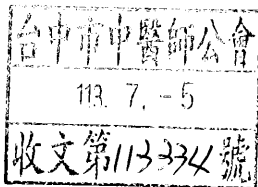 台中市中醫師公會
113. 7. -5
收文第113334號